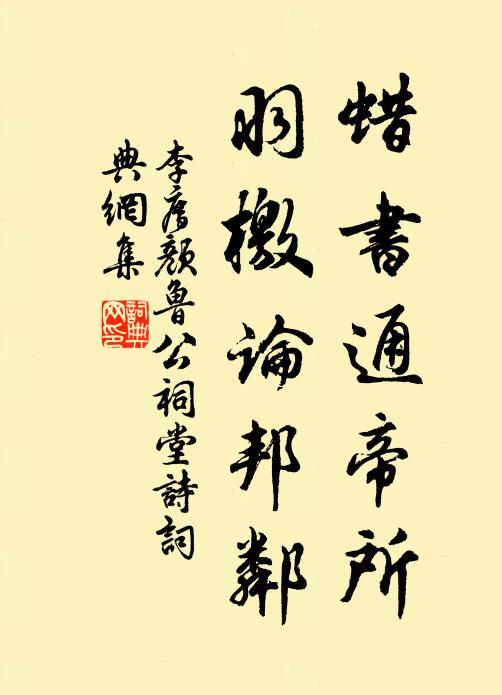 蜡書通帝所
羽檄論邦鄰
李廌顏魯公祠堂詩詞
典網集
詞典網印